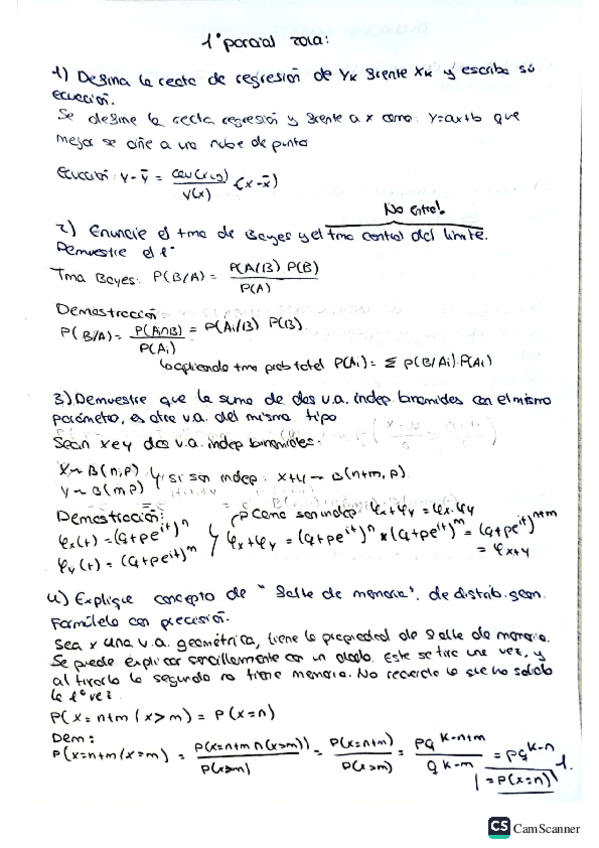 1º parcial 2012:
1) Defina la recta de regresión de Yk frente Xk y escriba su
ecuación.
Se define la recta regresión y frente a x como: Y=ax+b que
mejor se ciñe a una nube de punto
Ecuación: Y-ȳ = cov(x,y)/V(x) (x-x̄)
No entra!
2) Enuncie el tma de Bayes y el tma central del límite.
Demuestre el 1º
Tma Bayes: P(B/A) = P(A/B) P(B) / P(A)
Demostración:
P(B/A) = P(Ai∩B) / P(Ai) = P(Ai/B) P(B)
aplicando tma prob total P(Ai) = Σ P(B/Ai)·P(Ai)
3) Demuestre que la suma de dos v.a. indep. binomiales con el mismo
parámetro, es otra v.a. del mismo tipo
Sean x e y dos v.a. indep binomiales.
X~B(n,p)
Y~B(m,p) y si son indep: x+y ~ B(n+m, p)
Demostración: como son indep: φx+φy = φx·φy
φx(t) = (q+pe^it)^n
φy(t) = (q+pe^it)^m
φx+φy = (q+pe^it)^n * (q+pe^it)^m = (q+pe^it)^n+m
= φx+y
4) Explique concepto de "falta de memoria", de distrib. geom.
Formúlelo con precisión.
Sea x una v.a. geométrica, tiene la propiedad de falta de memoria.
Se puede explicar sencillamente con un dado. Este se tira una vez, y
al tirarlo la segunda no tiene memoria. No recuerda lo que ha salido
la 1º vez.
P(x=n+m/x>m) = P(x=n)
Dem:
P(x=n+m/x>m) = P(x=n+m∩(x>m)) / P(x>m) = P(x=n+m) / P(x>m) = pq^k-n+m / q^k-m = pq^k-n
= P(x=n)
1.
CS CamScanner